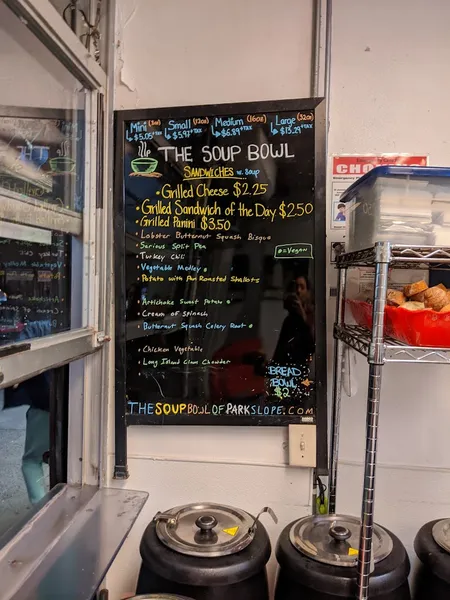 Mini (8oz) Small (12oz) Medium (16oz) Large (32oz)
$5.05+TAX $5.97+TAX $6.89+TAX $13.29+TAX
THE SOUP BOWL
SANDWICHES w. Soup
• Grilled Cheese $2.25
• Grilled Sandwich of the Day $2.50
• Grilled Panini $3.50
• Lobster Butternut Squash Bisque
• Serious Split Pea
• = Vegan
• Turkey Chili
• Vegetable Medley •
• Potato with Pan Roasted Shallots
• Artichoke Sweet Potato •
• Cream of Spinach
• Butternut Squash Celery Root •
• Chicken Vegetable
• Long Island Clam Chowder
BREAD
BOWL
$2
THESOUPBOWLOFPARKSLOPE.COM